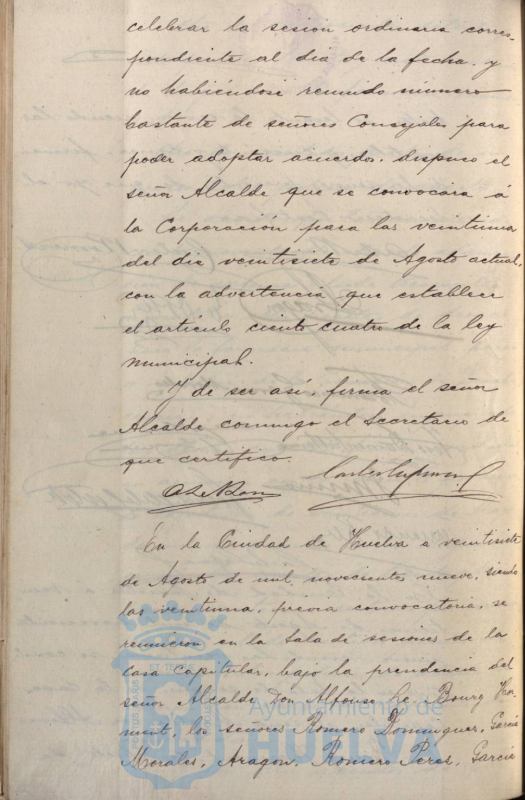 celebrar la sesión ordinaria corres-
pondiente al dia de la fecha. y
no habiéndose reunido número
bastante de señores Concejales para
poder adoptar acuerdos. dispuso el
señor Alcalde que se convocára á
la Corporación para las veintiuna
del dia veintisiete de Agosto actual,
con la advertencia que establece
el artículo ciento cuatro de la ley
municipal.
Y de ser así, firma el señor
Alcalde conmigo el Secretario de
que certifico.
En la Ciudad de Huelva a veintisiete
de Agosto de mil novecientos nueve, siendo
las veintiuna, prévia convocatoria, se
reunieron en la Sala de sesiones de la
Casa Capitular, bajo la presidencia del
señor Alcalde Don Alfonso Le Bourg Ha-
muit, los señores Romero Dominguez, García
Morales, Aragón, Romero Perez, García
Ayuntamiento de
HUELVA